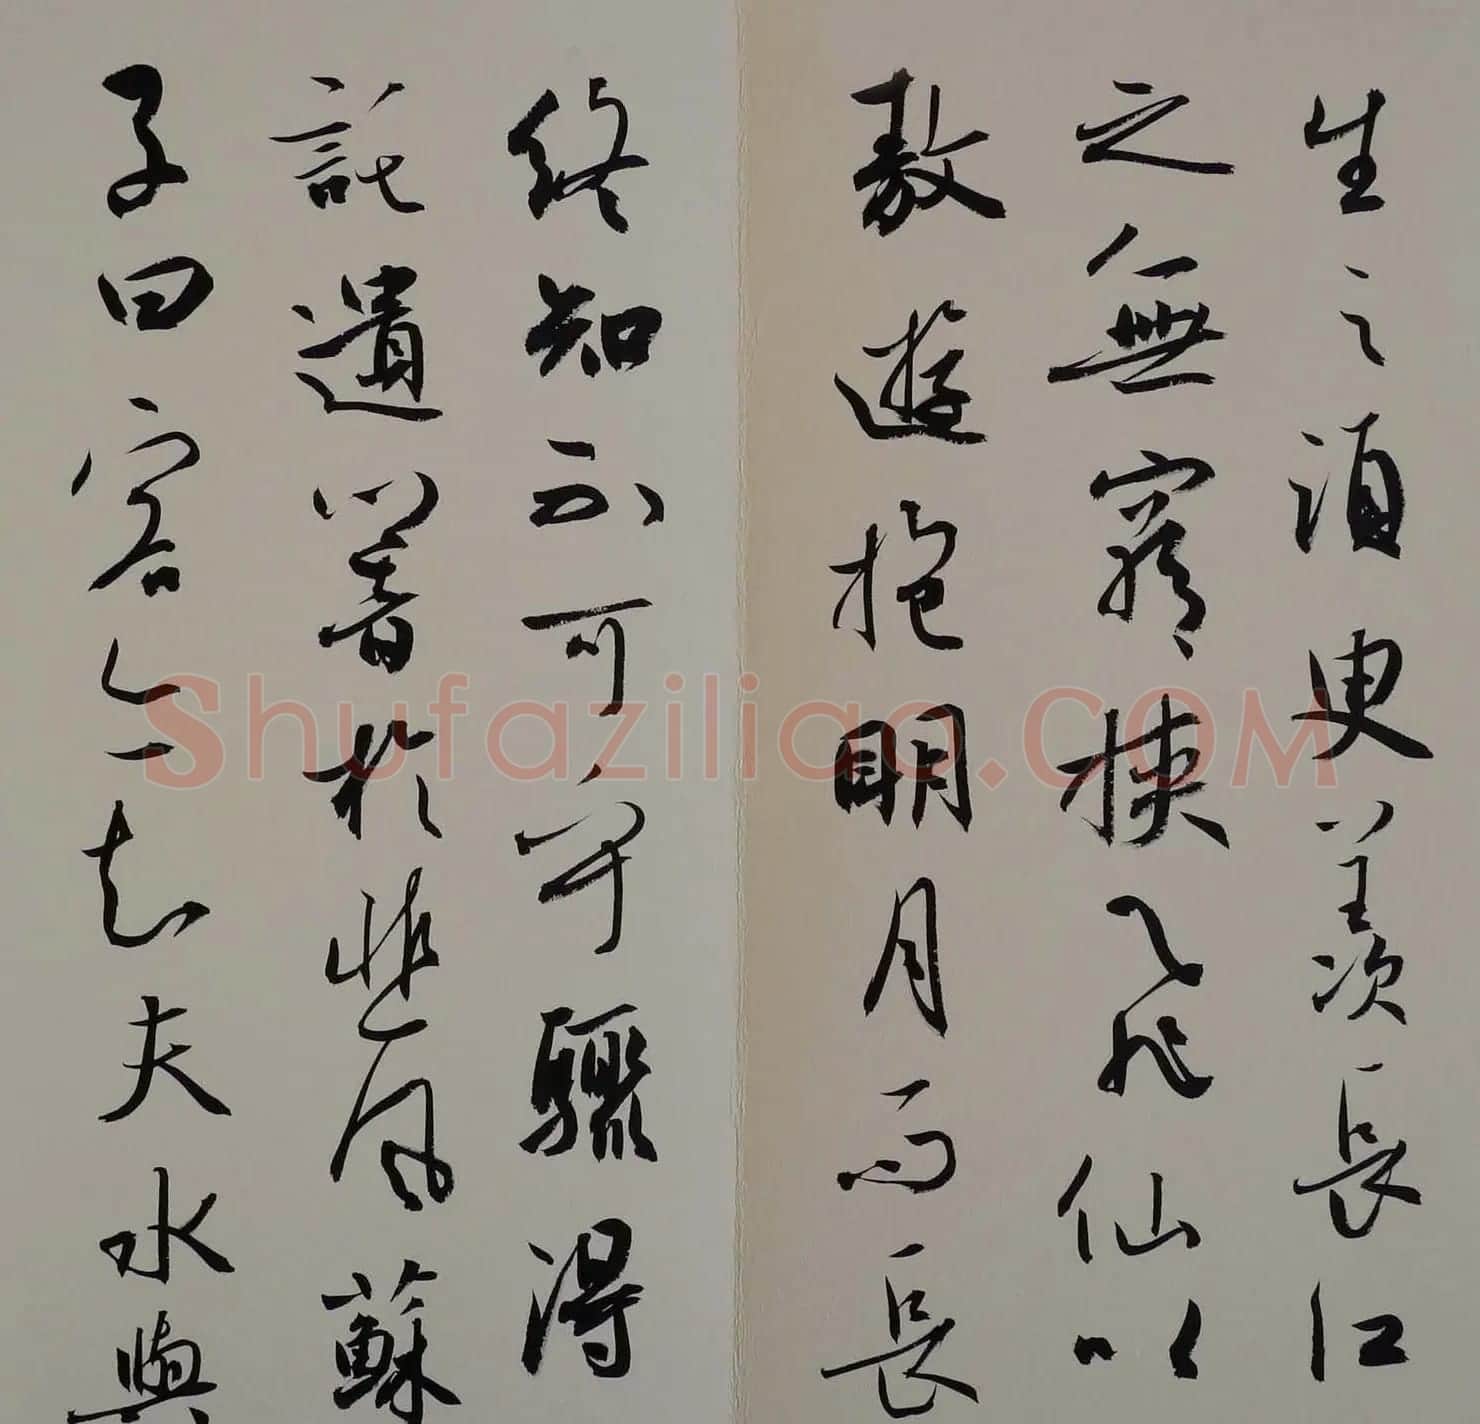 生之須臾羨長江
之無窮挾飛仙以
敖遊抱明月而長
終知不可乎驟得
託遺響於悲風蘇
子曰客亦知夫水與
Shufaziliao.COM